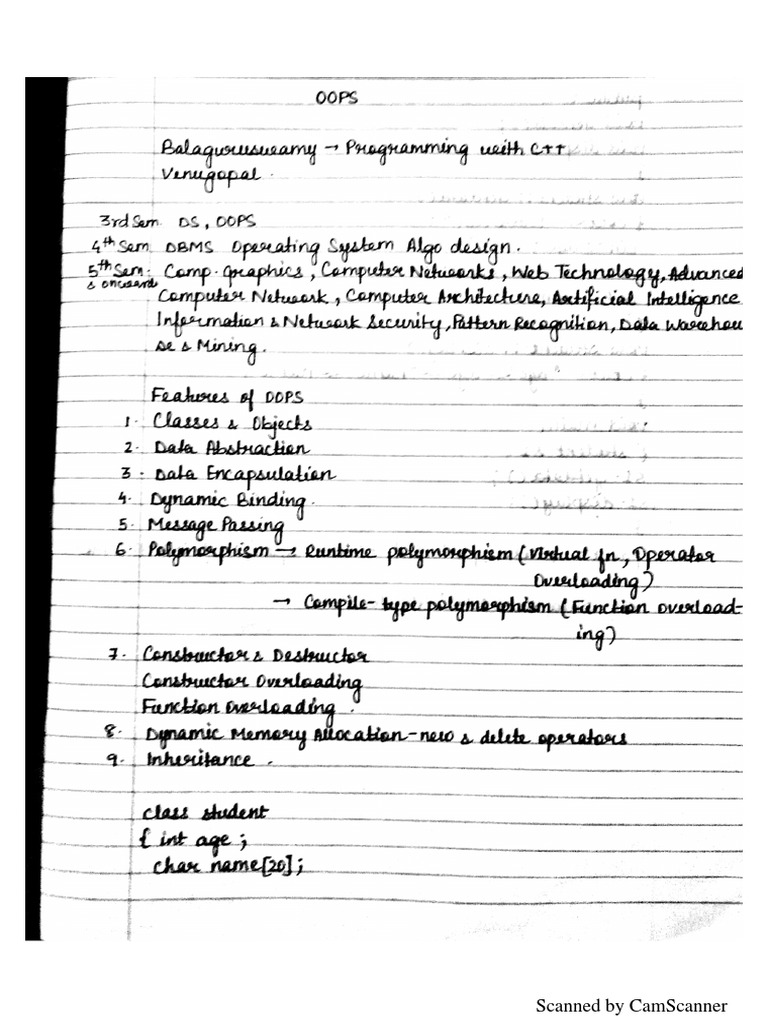 OOPS
Balaguruswamy → Programming with C++
Venugopal.
3rd Sem DS, OOPS
4th Sem. DBMS Operating System Algo design.
5th Sem: Comp. graphics, Computer Networks, Web Technology, Advanced
& onward Computer Network, Computer Architecture, Artificial Intelligence
Information & Network Security, Pattern Recognition, Data Warehou
se & Mining.
Features of OOPS
1. Classes & Objects
2. Data Abstraction
3. Data Encapsulation
4. Dynamic Binding.
5. Message Passing
6. Polymorphism → Runtime polymorphism (Virtual fn, Operator
Overloading)
→ Compile-type polymorphism (Function overload-
ing)
7. Constructor & Destructor
Constructor Overloading
Function Overloading.
8. Dynamic Memory Allocation - new & delete operators
9. Inheritance.
class student
{ int age;
char name[20];
Scanned by CamScanner